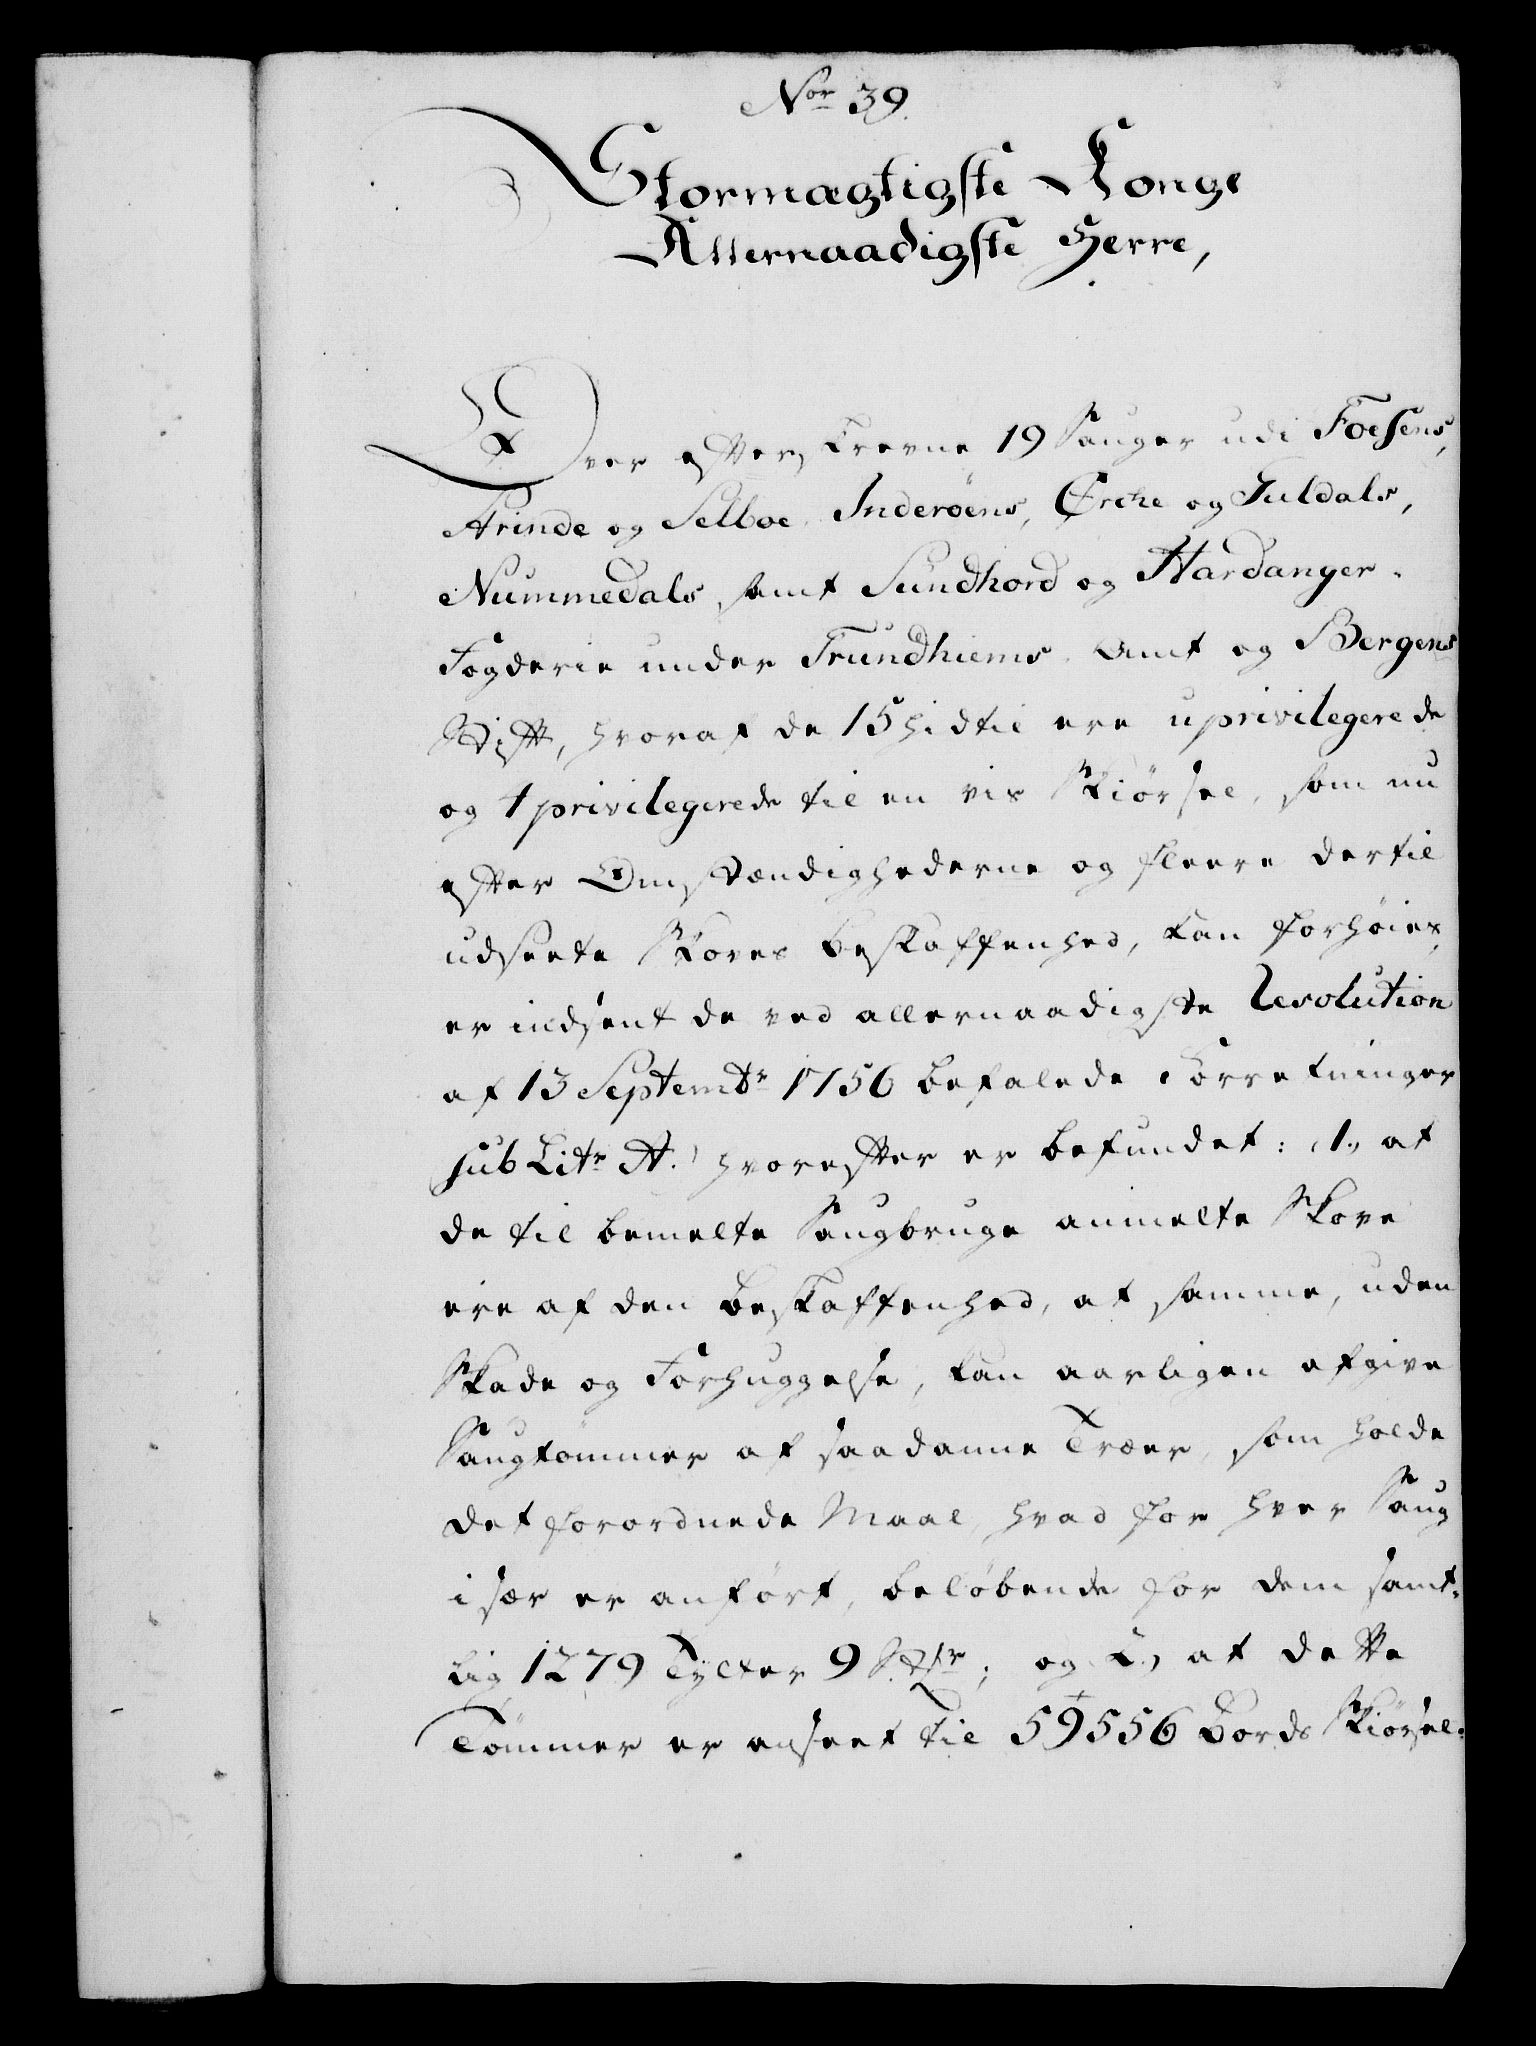 Nor 39.
Stormægtigste Konge
Allernaadigste Herre,
Over efterskrevne 19 Sauger udi Foesens,
Strinde og Selboe, Inderøens, Ørche og Guldals,
Nummedals, samt Sundhord og Hardanger-
Fogderie under Trundhiems Amt og Bergens
Stift, hvoraf de 15 hidtil ere uprivilegerede
og 4 privilegerede til en vis Skiørsel, som nu
efter Omstændighederne og fleere dertil
udseete Skoves beskaffenhed, kan forhøies,
er indsent de ved allernaadigste Resolution
af 13 Septembr 1756 befalede Forretninger
sub Litr A. hvorefter er befundet: 1., at
de til bemelte Saugbruge anmelte Skove
ere af den beskaffenhed, at samme, uden
Skade og Forhuggelse, kan aarligen afgive
Saugtømmer af saadanne Træer, som holde
det forordnede Maal, hvad for hver Saug
i sær er anført, beløbende for dem samt-
lig 1279 Tylter 9 Stkr; og 2., at dette
Tømmer er anseet til 59556 Bords Skiørsel: